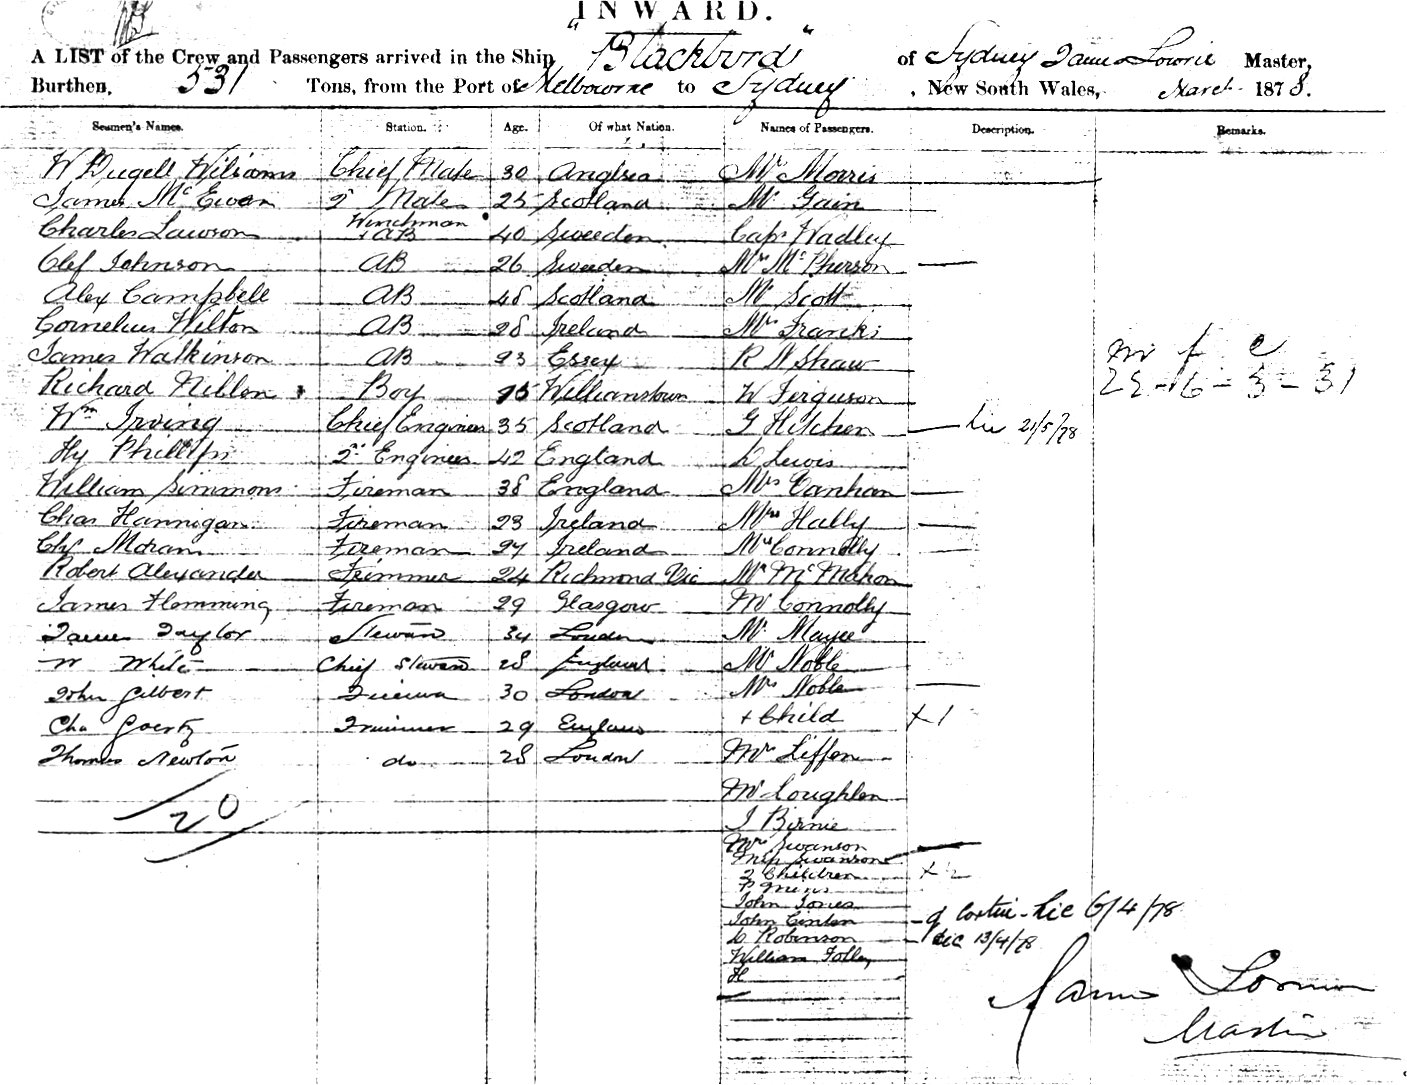 INWARD.
A LIST of the Crew and Passengers arrived in the Ship "Blackbird" of Sydney James Lowrie Master,
Burthen, 531 Tons, from the Port of Melbourne to Sydney, New South Wales, March 1878.
Seamen's Names. Station. Age. Of what Nation. Names of Passengers. Description. Remarks.
W Dugell Williams Chief Mate 30 Anglsea Mr Morris
James McEwan 2d Mate 25 Scotland Mr Gain
Charles Lawson Winchman + AB 40 Sweeden Capt Wadley
Olef Johnson AB 26 Sweeden Mrs McPherson
Alex Campbell AB 48 Scotland Mr Scott
Cornelius Wilton AB 28 Ireland Mrs Franks
James Walkinson AB 23 Essex R W Shaw m f c
Richard Niblon Boy 15 Williamstown W Ferguson 25-6-3-31
Wm Irving Chief Engineer 35 Scotland G Hitchen Lic 21/5/78
Hy Phillips 2d Engineer 42 England D Lewis
William Simmons Fireman 38 England Mrs Vanhan
Chas Hannigan Fireman 23 Ireland Mrs Hally
Moran Fireman 27 Ireland Mrs Connolly
Robert Alexander Trimmer 24 Richmond Vic Mr McMahon
James Flemming Fireman 29 Glasgow Mr Connolly
James Taylor Steward 34 London Mr Mayee
W White Chief Steward 28 England Mr Noble
John Gilbert Fireman 30 London Mrs Noble
Cha Goertz Trimmer 29 England + Child x1
Thomas Newton do 28 London Mr Liffen
20 Mr Loughlen
J Birnie
Mrs Swanson
Miss Swanson
2 Children x2
P Mins
John Jones
John Cinlan Lic 6/4/78
L Robinson Lic 13/4/78
William Folley
H
James Lowrie
Master